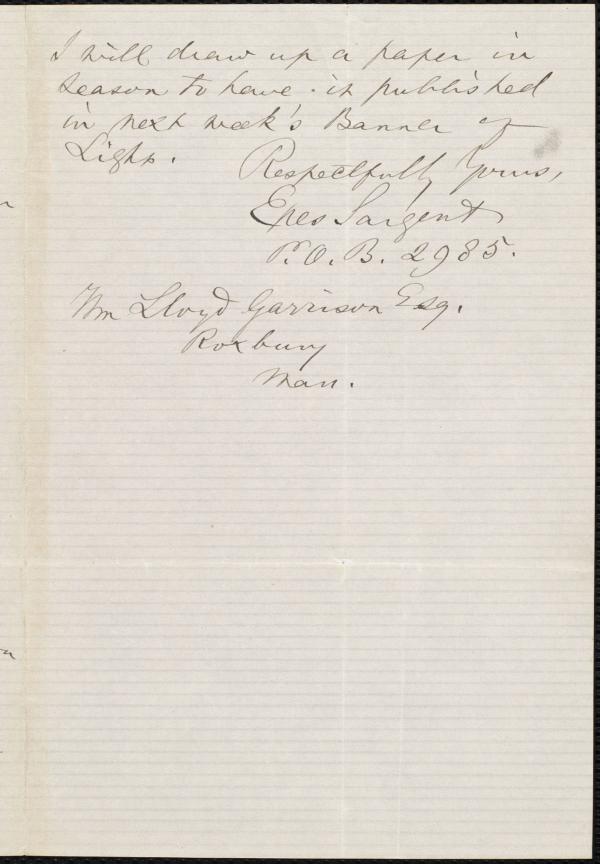 I will draw up a paper in
season to have it published
in next week's Banner of
Light.
Respectfully Yours,
Epes Sargent
P.O.B. 2985.
Wm Lloyd Garrison Esq.
Roxbury
Mass.